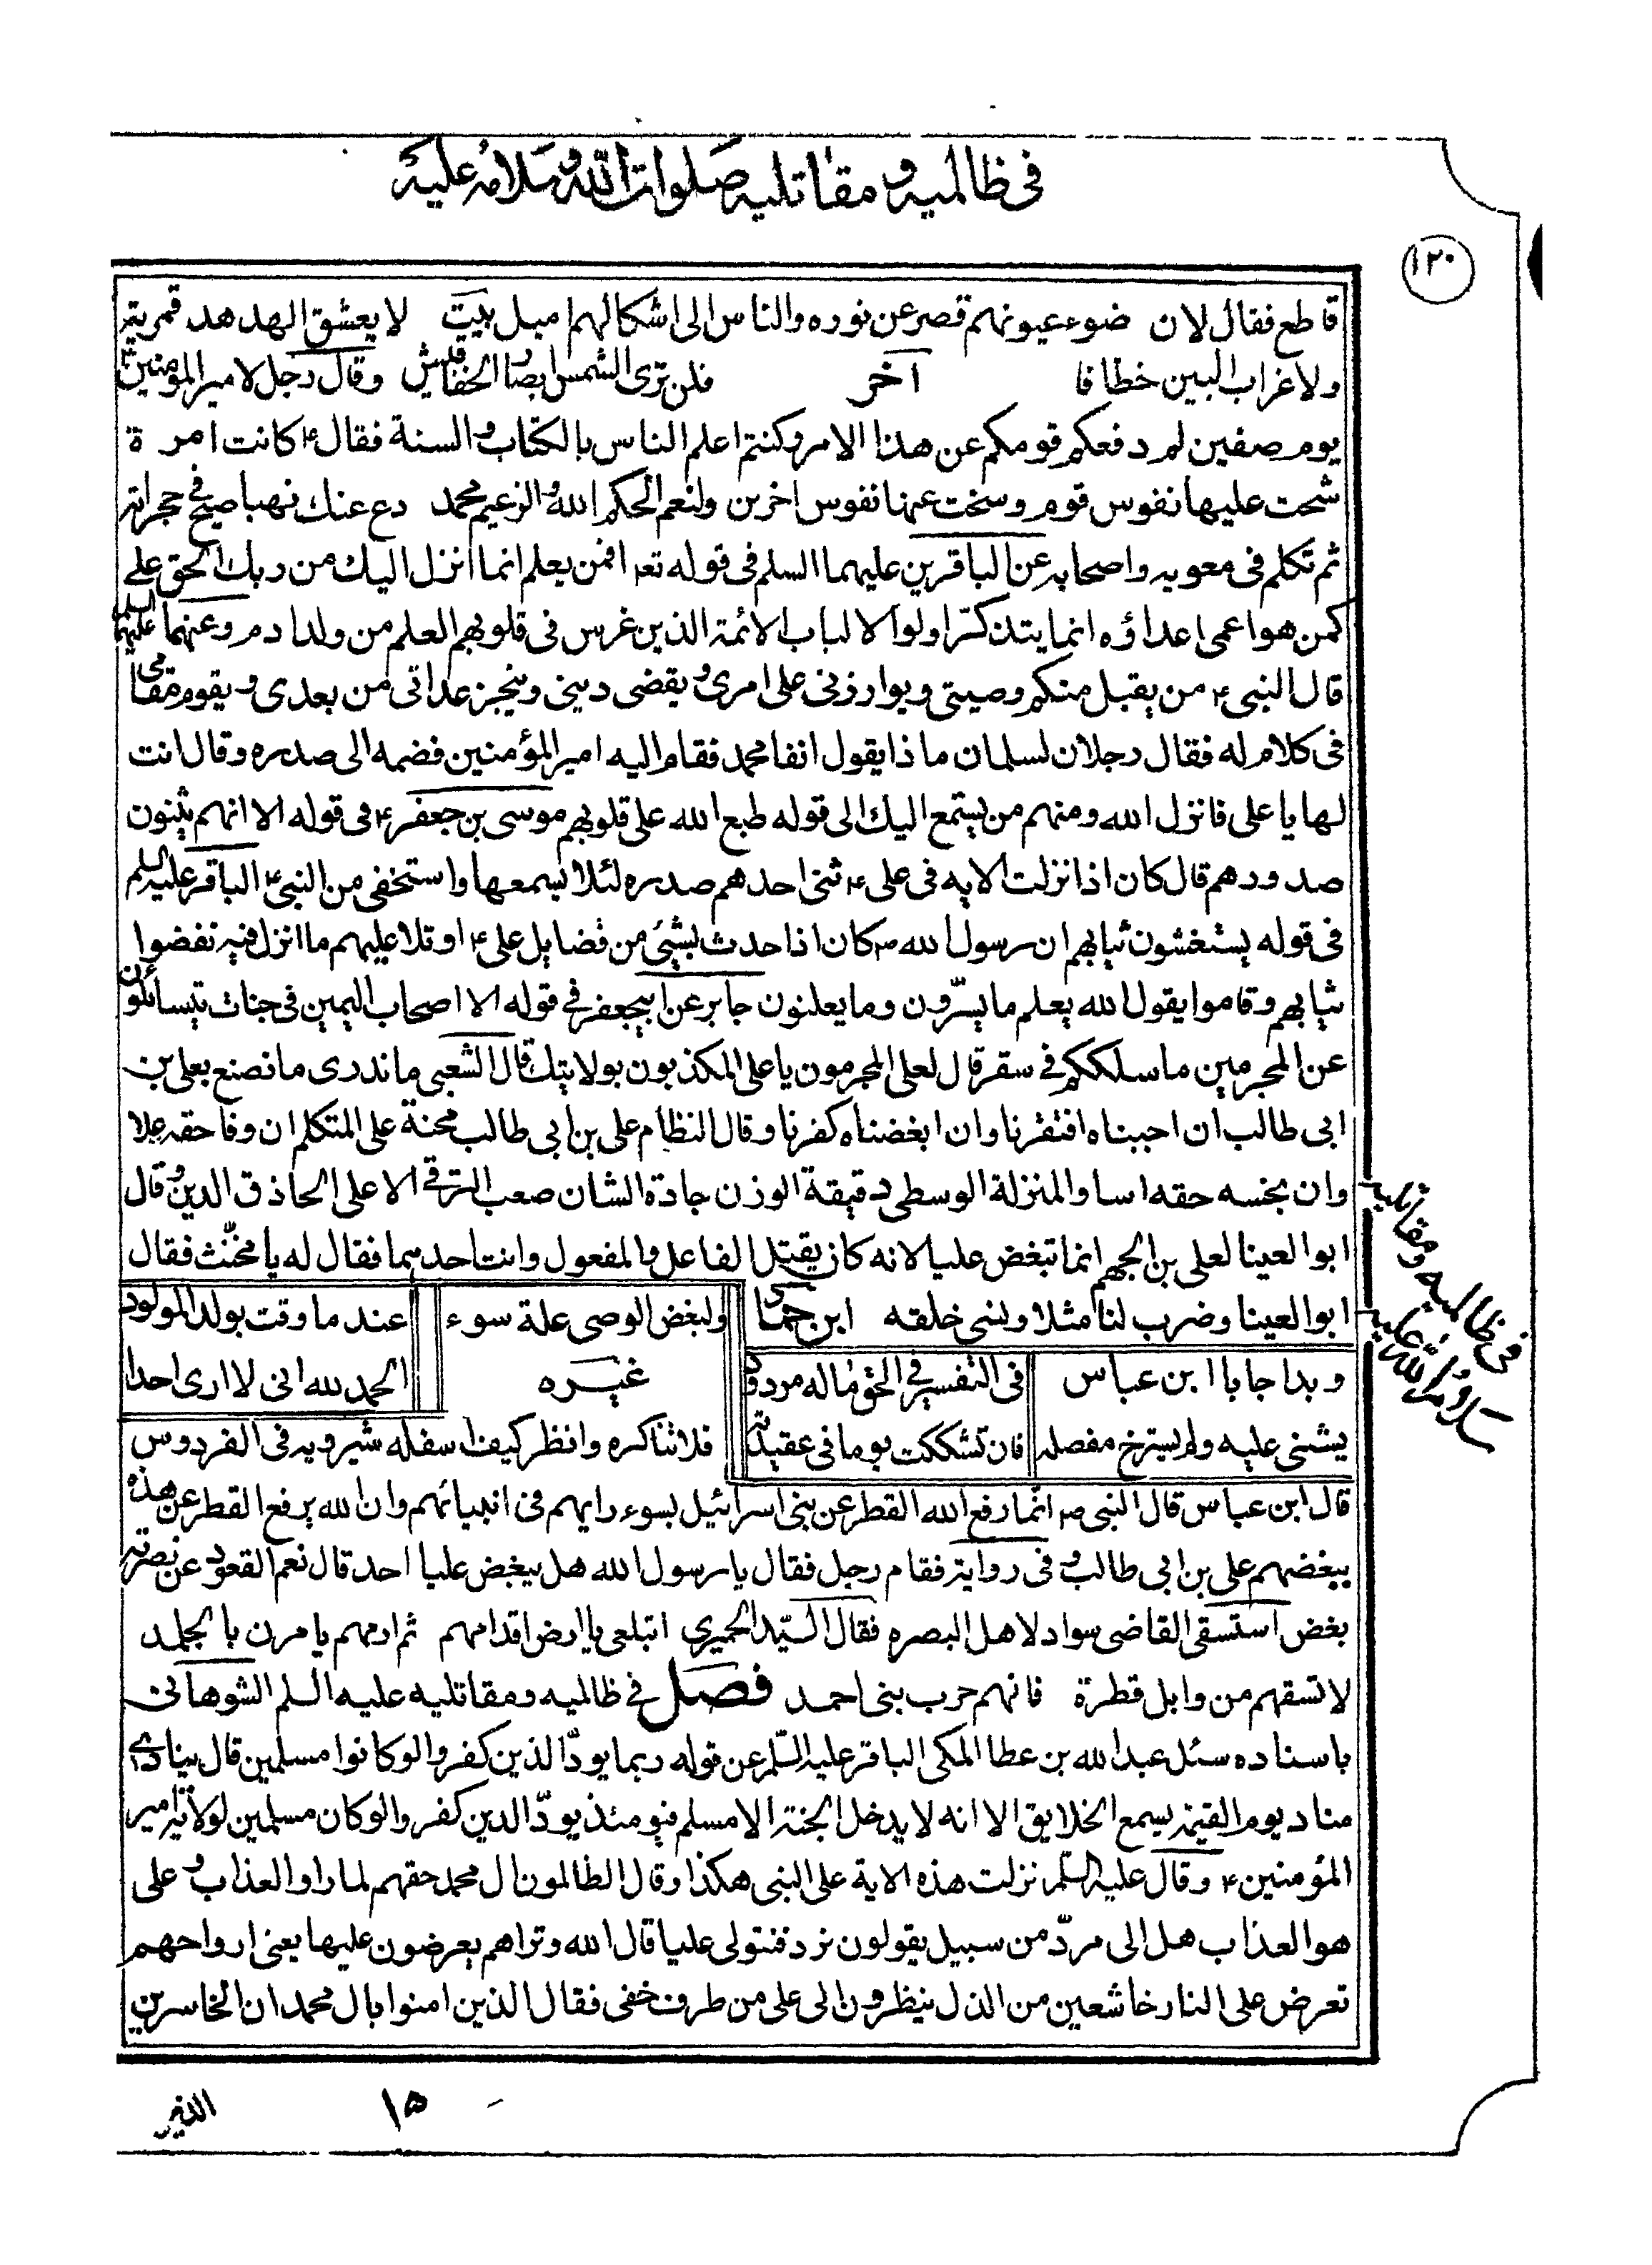 فى ظالميه و مقاتليه صلوات الله و سلامه عليه
١٢٠
قاطع فقال لان ضوء عيونهم قصر عن نوره والناس الى اشكالهم اميل بيت لا يعشق الهدهد قمرية
ولا غراب البين خطافا آخر فلن ترى الشمس ابصار الخفافيش وقال رجل لامير المؤمنين ع
يوم صفين لم دفعكم قومكم عن هذا الامر وكنتم اعلم الناس بالكتاب و السنة فقال ع كانت امرة
شحت عليها نفوس قوم وسخت عنها نفوس اخرين ولنعم الحكم الله و الزعيم محمد دع عنك نهبا صيح فى حجراته
ثم تكلم فى معويه واصحابه عن الباقرين عليهما السلم فى قوله تع افمن يعلم انما انزل اليك من ربك الحق على
كمن هو اعمى اعداؤه انما يتذكر اولوا الالباب الائمة الذين غرس فى قلوبهم العلم من ولد ادم وعنهما عليهما السلم
قال النبى ص من يقبل منكم وصيتى ويوازرنى على امرى و يقضى دينى وينجز عداتى من بعدى و يقوم مقامى
فى كلام له فقال رجلان لسلمان ماذا يقول انفا محمد فقام اليه امير المؤمنين فضمه الى صدره وقال انت
لها يا على فانزل الله ومنهم من يستمع اليك الى قوله طبع الله على قلوبهم موسى بن جعفر ع فى قوله الا انهم يثنون
صدورهم قال كان اذا نزلت الايه فى على ع ثنى احدهم صدره لئلا يسمعها واستخفى من النبى ص الباقر عليه السلم
فى قوله يستغشون ثيابهم ان رسول الله ص كان اذا حدث بشئ من فضايل على ع او تلا عليهم ما انزل فيه نفضوا
ثيابهم وقاموا يقول الله يعلم ما يسرون وما يعلنون جابر عن ابيجعفر فى قوله الا اصحاب اليمين فى جنات يتسائلون
عن المجرمين ما سلككم فى سقر قال لعلى المجرمون يا على المكذبون بولايتك قال الشعبى ما ندرى ما نصنع بعلى بن
ابى طالب ان احببناه افتقرنا وان ابغضناه كفرنا وقال النظام على بن ابى طالب محنة على المتكلم ان وفا حقه غلا
وان بخسه حقه اسا والمنزلة الوسطى دقيقة الوزن حادة الشان صعب الترقى الا على الحاذق الدين و قال
ابو العينا لعلى بن الجهم انما تبغض عليا لانه كان يقتل الفاعل و المفعول وانت احدهما فقال له يا مخنث فقال
ابو العينا وضرب لنا مثلا ونسى خلقه ابن حماد ولبغض الوصى علة سوء عند ما وقت بولد المولود
وبدا جابا ابن عباس فى التفسير فى الحق ما له مردود غيره الحمد لله انى لا ارى احدا
يثنى عليه ولم يسترخ مفصله فان تشككت يوما فى عقيدته فلا تناكره وانظر كيف اسفله شيرويه فى الفردوس
قال ابن عباس قال النبى ص انما رفع الله القطر عن بنى اسرائيل بسوء رايهم فى انبيائهم وان الله يرفع القطر عن هذه
ببغضهم على بن ابى طالب و فى رواية فقام رجل فقال يا رسول الله هل يبغض عليا احد قال نعم القعود عن نصرته
بغض استسقى القاضى سواد لاهل البصره فقال السيد الحميرى ابتلعى يا ارض اقدامهم ثم ارمهم يا مزن بالجلمد
لا تسقهم من وابل قطرة فانهم حرب بنى احمد فصل فى ظالميه ومقاتليه عليه السلم الشوهانى
باسناده سئل عبدالله بن عطا المكى الباقر عليه السلم عن قوله ربما يود الذين كفروا لو كانوا مسلمين قال ينادى
مناد يوم القيمة يسمع الخلايق الا انه لا يدخل الجنة الا مسلم فيومئذ يود الدين كفروا لو كان مسلمين لولاية امير
المؤمنين ع وقال عليه السلم نزلت هذه الاية على النبى هكذا وقال الظالمون ال محمد حقهم لما راوا العذاب و على
هو العذاب هل الى مرد من سبيل يقولون نرد فنتولى عليا قال الله وتراهم يعرضون عليها يعنى ارواحهم
تعرض على النار خاشعين من الذل ينظرون الى على من طرف خفى فقال الذين امنوا بال محمد ان الخاسرين
فى ظالميه و مقاتليه
سلام الله عليه
١٥
الذين